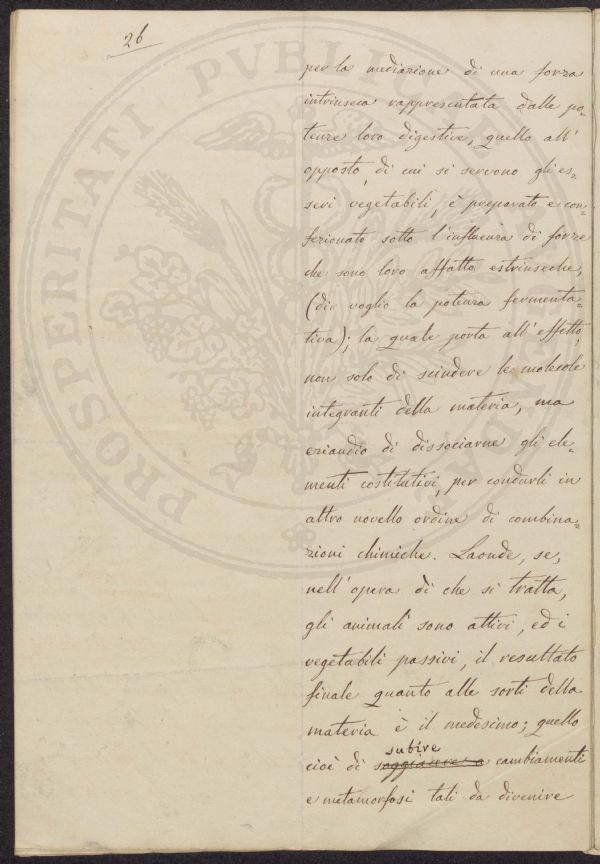 26
per la mediazione di una forza
intrinseca rappresentata dalle po-
tenze loro digestive, quello all'
opposto, di cui si servono gli es-
seri vegetabili, è preparato e con-
fezionato sotto l'influenza di forze
che sono loro affatto estrinseche,
(dir voglio la potenza fermenta-
tiva); la quale porta all'effetto,
non solo di scindere le molecole
integranti della materia, ma
eziandio di dissociarne gli ele-
menti costitutivi, per condurli in
altro novello ordine di combina-
zioni chimiche. Laonde, se,
nell'opera di che si tratta,
gli animali sono attivi, ed i
vegetabili passivi, il resultato
finale quanto alle sorti della
materia è il medesimo; quello
subire
cioè di soggiacere a cambiamenti
e metamorfosi tali da divenire
PROSPERITATI PVBLICAE